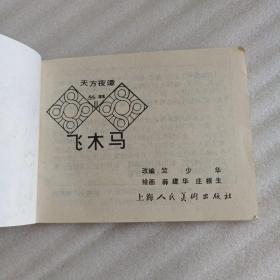 天方夜谭
丛书
11
飞木马
改编 竺少华
绘画 薜建华 庄根生
上海人民美术出版社